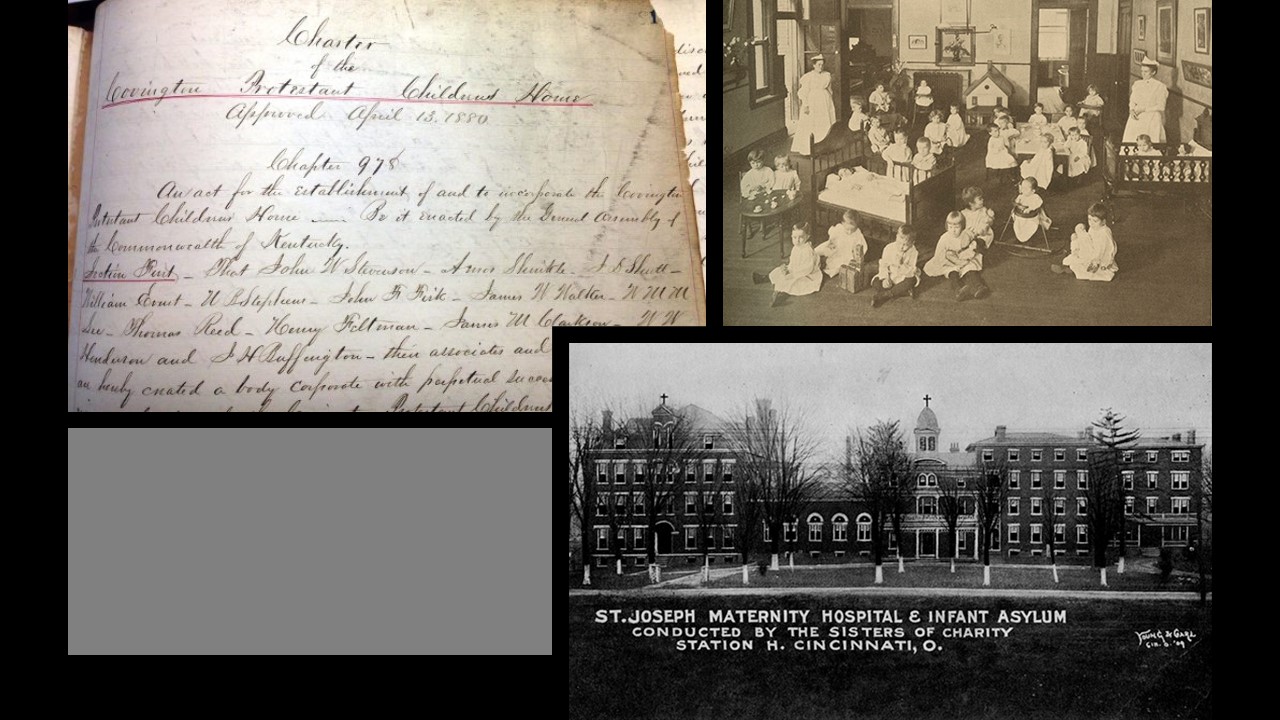 1
Charter
of the
Covington Protestant Childrens Home
Approved April 13, 1880
Chapter 978
An act for the establishment of and to incorporate the Covington
Protestant Childrens Home — Be it enacted by the General Assembly of
the Commonwealth of Kentucky.
Section First — That John W Stevenson — Amos Shinkle —
William Ernst — Stephens — John F Fisk — James W Walker — W M M
Thomas Reed — Henry Feltman — James M Clarkson — W W
Henderson and J H Buffington — their associates and
are hereby created a body corporate with perpetual
Protestant Childrens
ST. JOSEPH MATERNITY HOSPITAL & INFANT ASYLUM
CONDUCTED BY THE SISTERS OF CHARITY
STATION H. CINCINNATI, O.
YOUNG & CARL
CIN. O. '09